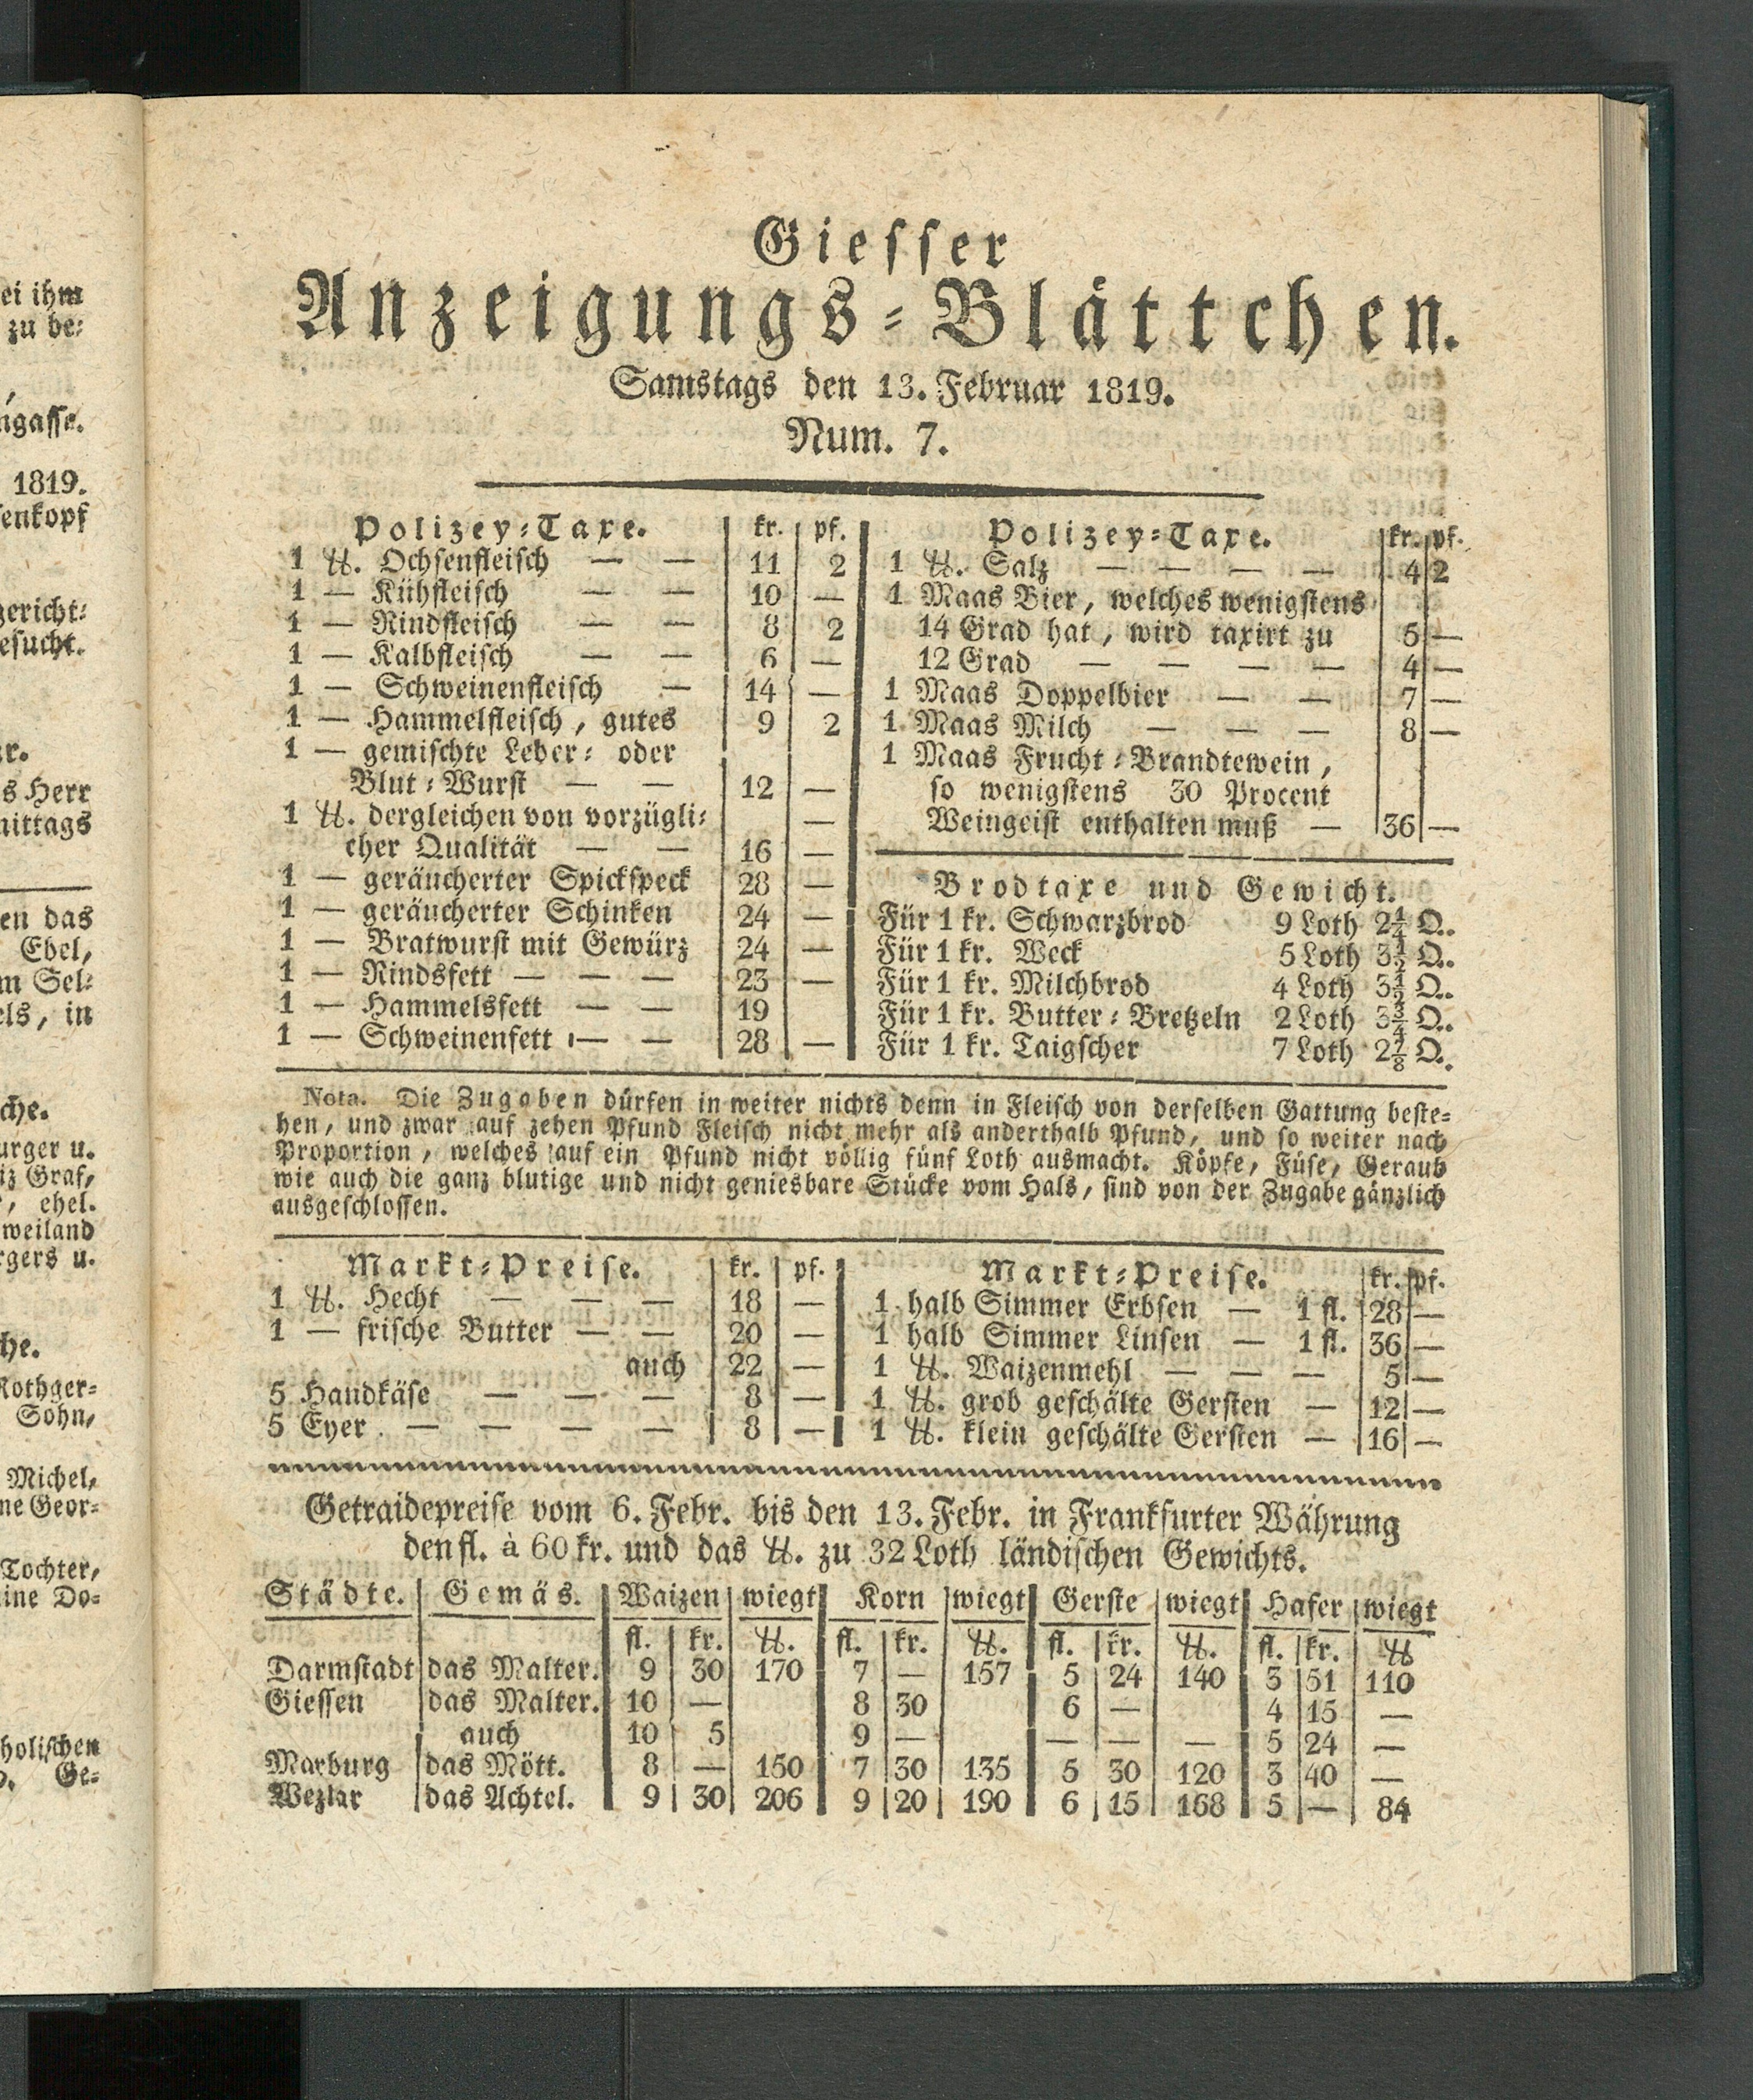 ei ihm
zu be⸗
ngasse.
1819.
senkopf
gericht⸗
esucht.
r.
s Herr
mittags
en das
Ebel,
m Sel⸗
els, in
che.
urger u.
iz Graf,
, ehel.
weiland
rgers u.
he.
Rothger⸗
Sohn,
Michel,
ne Geor⸗
Tochter,
ine Do⸗
holischen
Ge⸗
Giesser
Anzeigungs⸗Blättchen.
Samstags den 13. Februar 1819.
Num. 7.
Polizey⸗Taxe. kr. pf.
1 ℔. Ochsenfleisch — — 11 2
1 — Kühfleisch — — 10 —
1 — Rindfleisch — — 8 2
1 — Kalbfleisch — — 6 —
1 — Schweinenfleisch — 14 —
1 — Hammelfleisch, gutes 9 2
1 — gemischte Leber⸗ oder
Blut⸗Wurst — — 12 —
1 ℔. dergleichen von vorzügli⸗ —
cher Qualität — — 16 —
1 — geräucherter Spickspeck 28 —
1 — geräucherter Schinken 24 —
1 — Bratwurst mit Gewürz 24 —
1 — Rindsfett — — — 23 —
1 — Hammelsfett — — 19
1 — Schweinenfett — — 28 —
Polizey⸗Taxe. kr. pf.
1 ℔. Salz — — — — 4 2
1 Maas Bier, welches wenigstens
14 Grad hat, wird taxirt zu 5 —
12 Grad — — — — 4 —
1 Maas Doppelbier — — 7 —
1 Maas Milch — — — 8 —
1 Maas Frucht⸗Brandtewein,
so wenigstens 30 Procent
Weingeist enthalten muß — 36 —
Brodtaxe und Gewicht.
Für 1 kr. Schwarzbrod 9 Loth 2¼ Q.
Für 1 kr. Weck 5 Loth 3½ Q.
Für 1 kr. Milchbrod 4 Loth 3½ Q.
Für 1 kr. Butter⸗Bretzeln 2 Loth 3¾ Q.
Für 1 kr. Taigscher 7 Loth 2⅞ Q.
Nota. Die Zugaben dürfen in weiter nichts denn in Fleisch von derselben Gattung beste⸗
hen, und zwar auf zehen Pfund Fleisch nicht mehr als anderthalb Pfund, und so weiter nach
Proportion, welches auf ein Pfund nicht völlig fünf Loth ausmacht. Köpfe, Füse, Geraub
wie auch die ganz blutige und nicht geniesbare Stücke vom Hals, sind von der Zugabe gänzlich
ausgeschlossen.
Markt⸗Preise. kr. pf.
1 ℔. Hecht — — — 18 —
1 — frische Butter — — 20 —
auch 22 —
5 Handkäse — — — 8 —
5 Eyer — — — — 8 —
Markt⸗Preise. kr. pf.
1 halb Simmer Erbsen — 1 fl. 28 —
1 halb Simmer Linsen — 1 fl. 36 —
1 ℔. Waizenmehl — — — 5 —
1 ℔. grob geschälte Gersten — 12 —
1 ℔. klein geschälte Gersten — 16 —
Getraidepreise vom 6. Febr. bis den 13. Febr. in Frankfurter Währung
den fl. à 60 kr. und das ℔. zu 32 Loth ländischen Gewichts.
Städte. Gemäs. Waizen wiegt Korn wiegt Gerste wiegt Hafer wiegt
fl. kr. ℔. fl. kr. ℔. fl. kr. ℔. fl. kr. ℔
Darmstadt das Malter. 9 30 170 7 — 157 5 24 140 3 51 110
Giessen das Malter. 10 — 8 30 6 — 4 15 —
auch 10 5 9 — — — — 5 24 —
Marburg das Mött. 8 — 150 7 30 135 5 30 120 3 40 —
Wezlar das Achtel. 9 30 206 9 20 190 6 15 168 5 — 84